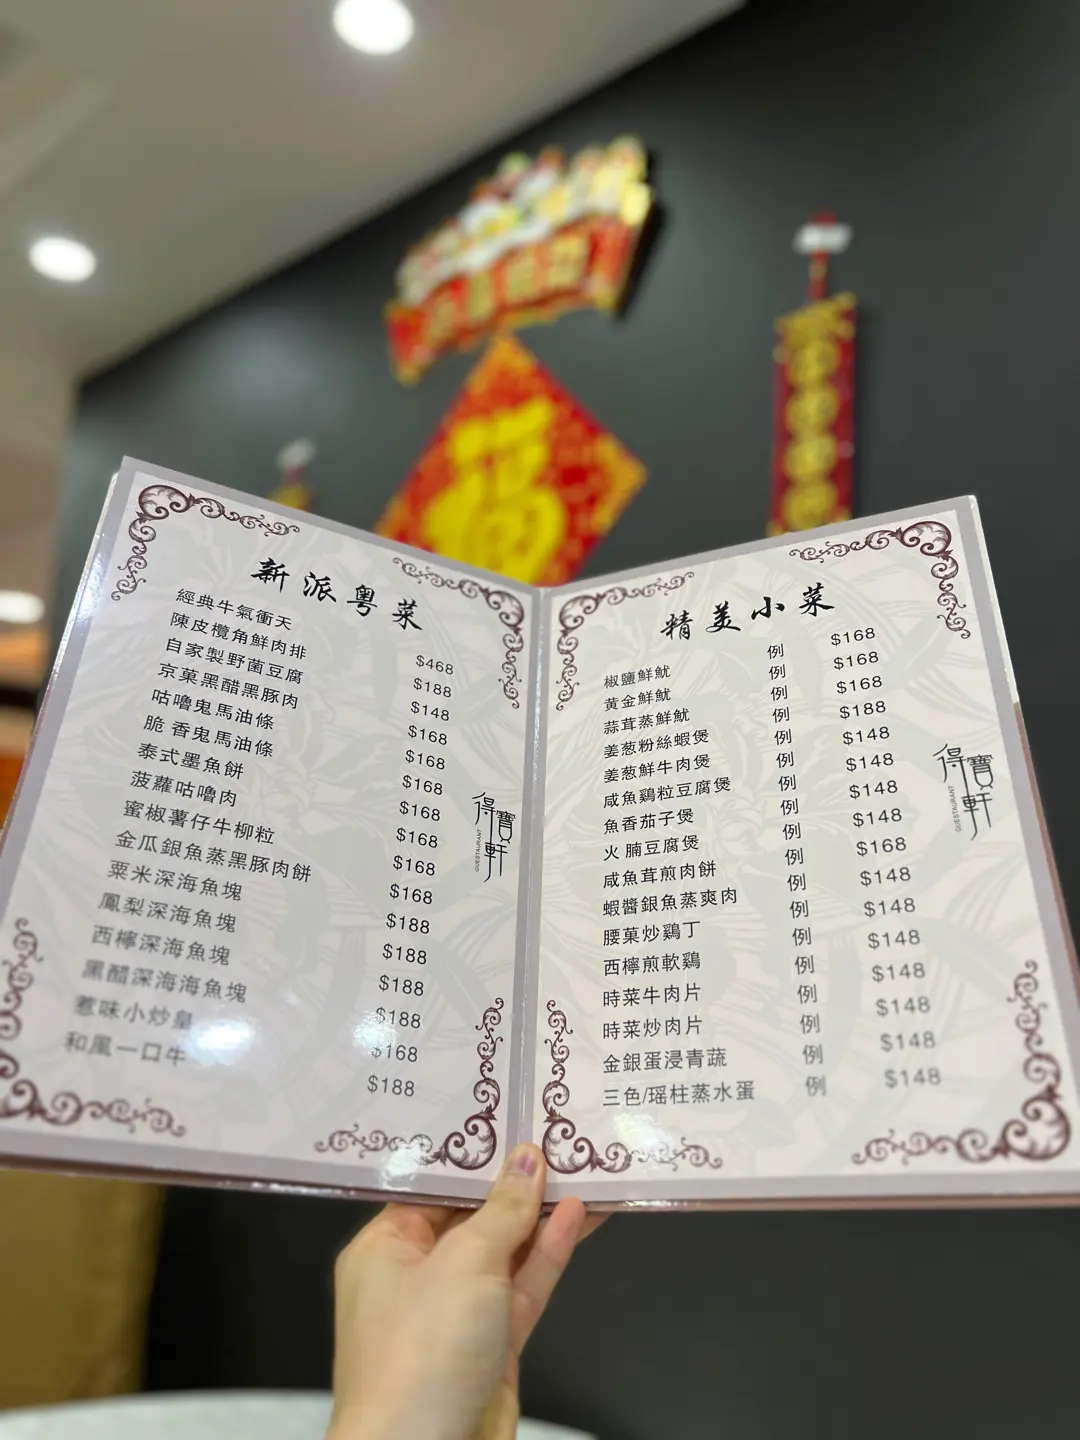 福
新派粵菜
經典牛氣衝天 $468
陳皮欖角鮮肉排 $188
自家製野菌豆腐 $148
京菓黑醋黑豚肉 $168
咕嚕鬼馬油條 $168
脆香鬼馬油條 $168
泰式墨魚餅 $168
菠蘿咕嚕肉 $168
蜜椒薯仔牛柳粒 $168
金瓜銀魚蒸黑豚肉餅 $168
粟米深海魚塊 $188
鳳梨深海魚塊 $188
西檸深海魚塊 $188
黑醋深海海魚塊 $188
惹味小炒皇 $168
和風一口牛 $188
得寶軒
GUESTAURANT
精美小菜
椒鹽鮮魷 例 $168
黄金鮮魷 例 $168
蒜茸蒸鮮魷 例 $168
姜葱粉絲蝦煲 例 $188
姜葱鮮牛肉煲 例 $148
咸魚鷄粒豆腐煲 例 $148
魚香茄子煲 例 $148
火腩豆腐煲 例 $148
咸魚茸煎肉餅 例 $168
蝦醬銀魚蒸爽肉 例 $148
腰菓炒鷄丁 例 $148
西檸煎軟鷄 例 $148
時菜牛肉片 例 $148
時菜炒肉片 例 $148
金銀蛋浸青蔬 例 $148
三色/瑶柱蒸水蛋 例 $148
得寶軒
GUESTAURANT